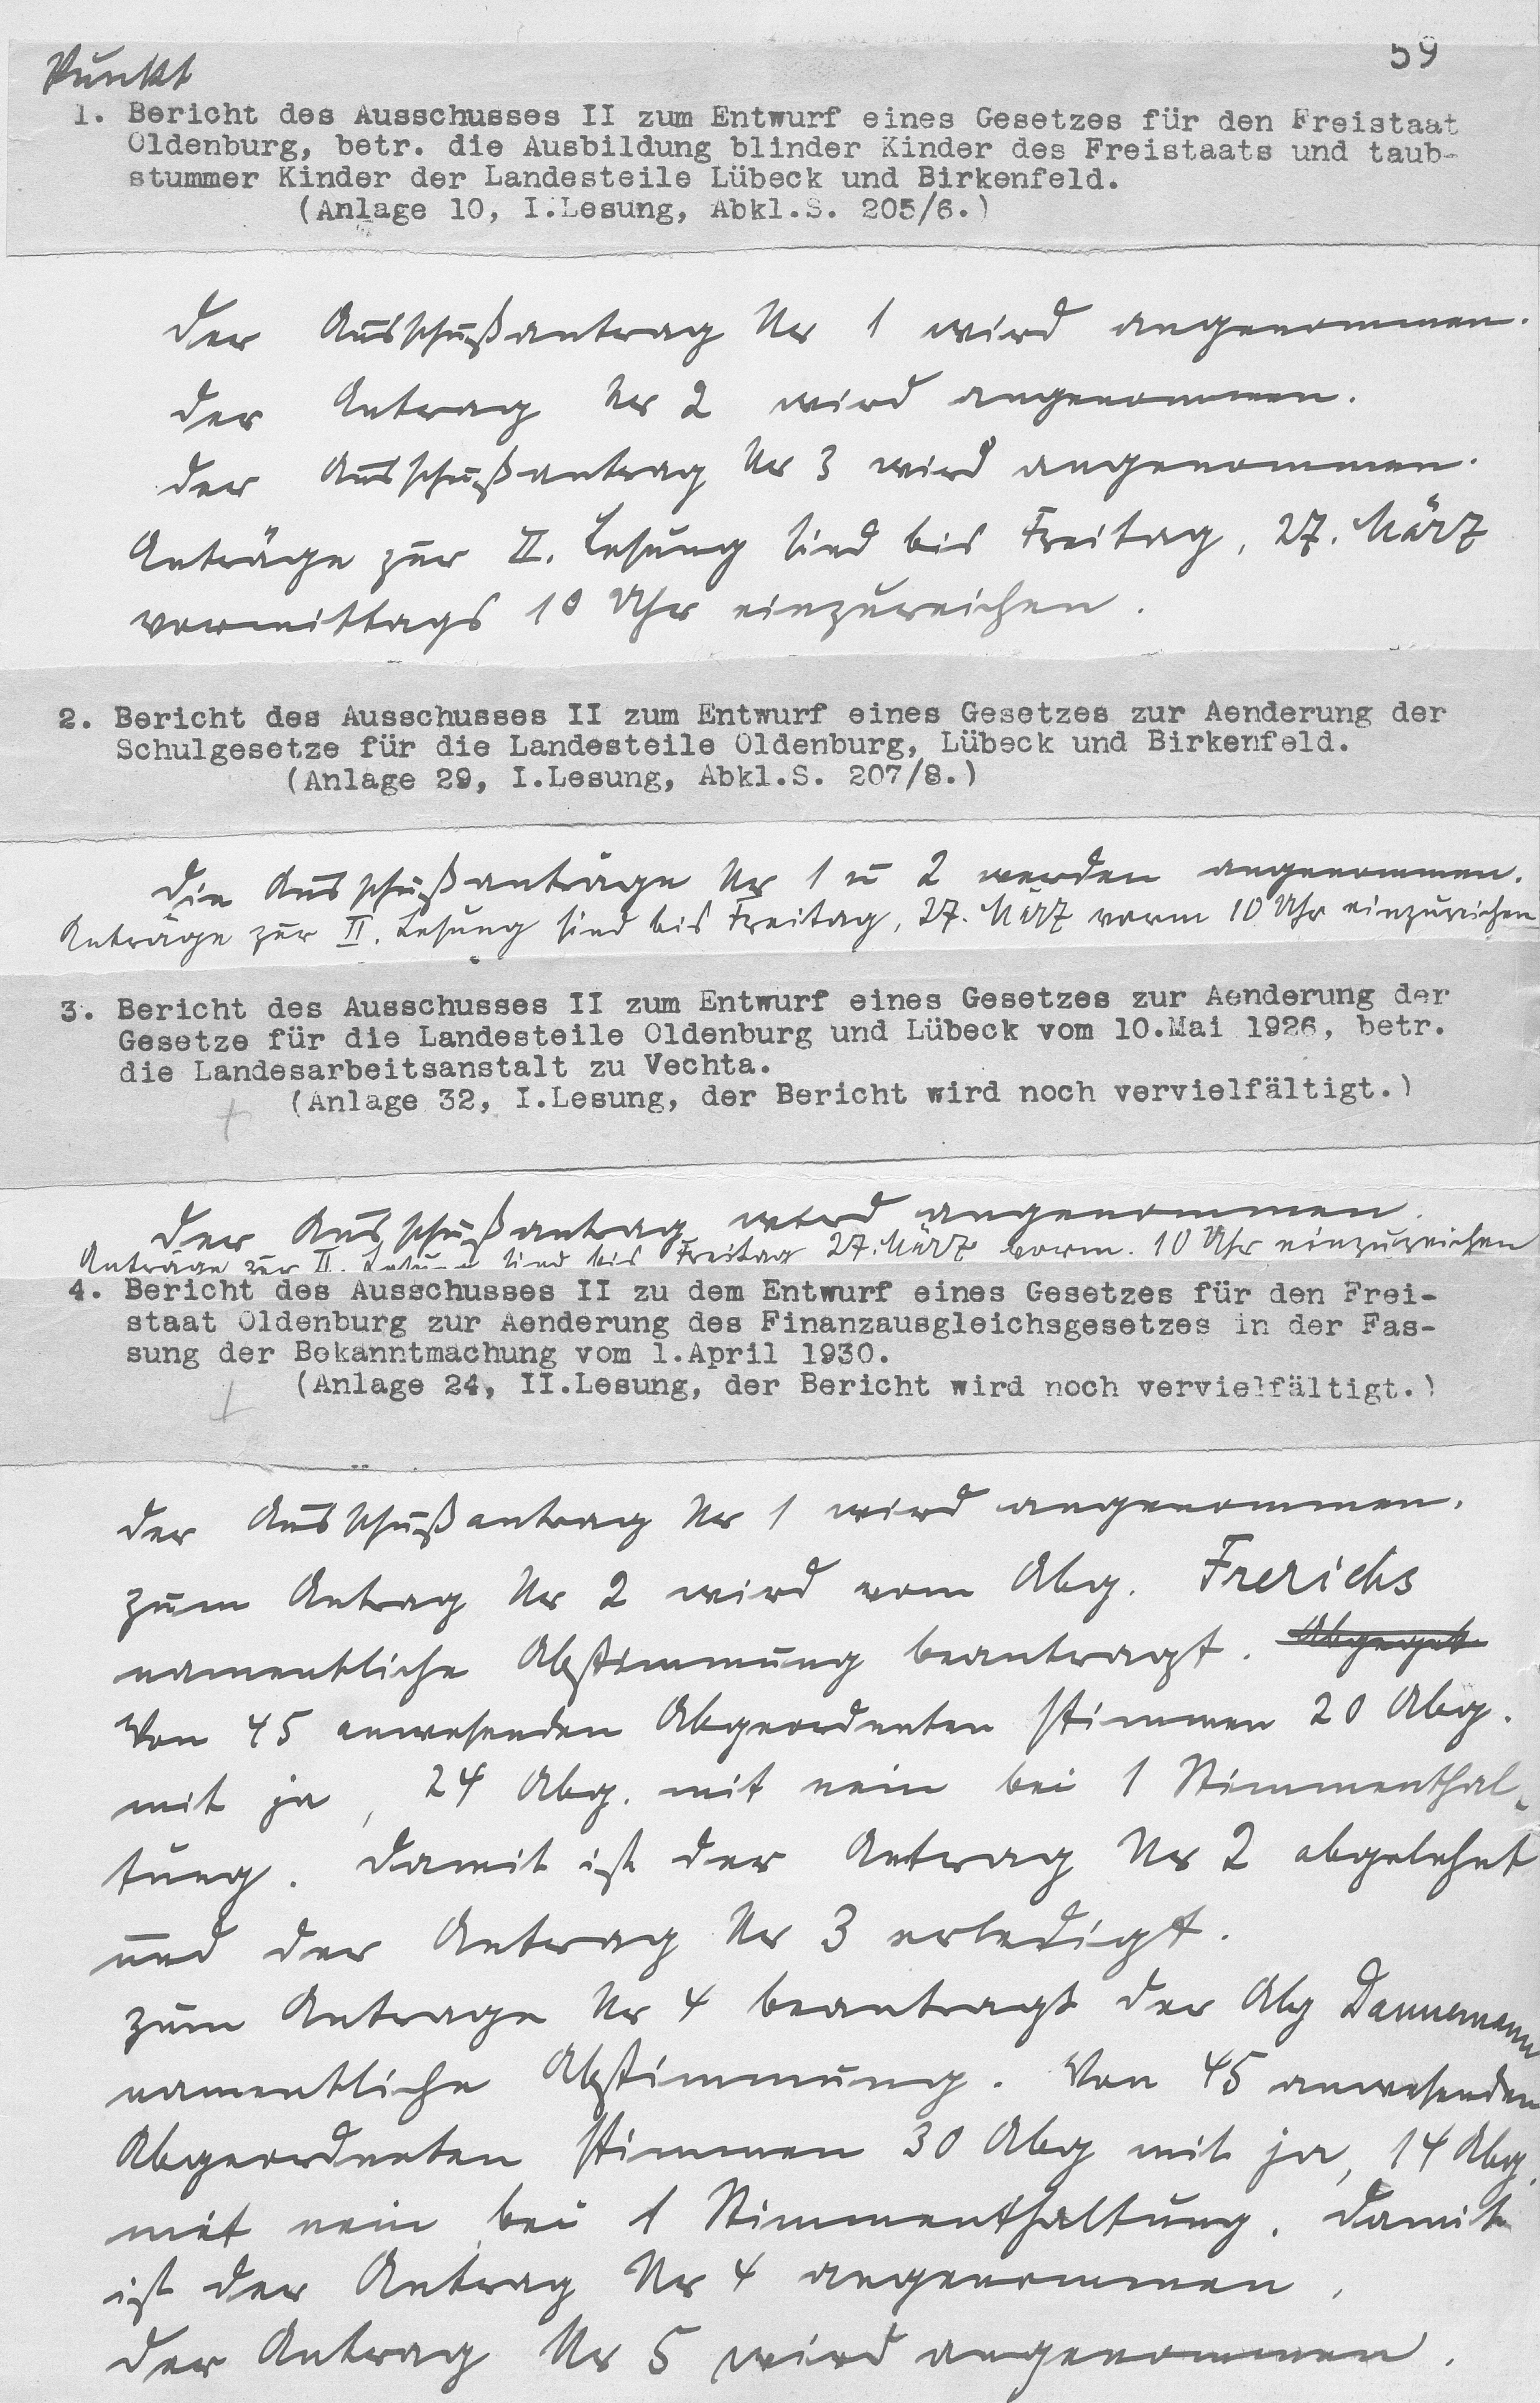 59
Punkt
1. Bericht des Ausschusses II zum Entwurf eines Gesetzes für den Freistaat
Oldenburg, betr. die Ausbildung blinder Kinder des Freistaats und taub-
stummer Kinder der Landesteile Lübeck und Birkenfeld.
(Anlage 10, I.Lesung, Abkl.S. 205/6.)
Der Ausschußantrag Nr 1 wird angenommen.
Der Antrag Nr 2 wird angenommen.
Der Ausschußantrag Nr 3 wird angenommen.
Anträge zur II. Lesung sind bis Freitag, 27. März
vormittags 10 Uhr einzureichen.
2. Bericht des Ausschusses II zum Entwurf eines Gesetzes zur Aenderung der
Schulgesetze für die Landesteile Oldenburg, Lübeck und Birkenfeld.
(Anlage 29, I.Lesung, Abkl.S. 207/8.)
Die Ausschußanträge Nr 1 u 2 werden angenommen.
Anträge zur II. Lesung sind bis Freitag, 27. März vorm 10 Uhr einzureichen
3. Bericht des Ausschusses II zum Entwurf eines Gesetzes zur Aenderung der
Gesetze für die Landesteile Oldenburg und Lübeck vom 10.Mai 1926, betr.
die Landesarbeitsanstalt zu Vechta.
(Anlage 32, I.Lesung, der Bericht wird noch vervielfältigt.)
Der Ausschußantrag wird angenommen.
Anträge zur II. Lesung sind bis Freitag 27. März vorm. 10 Uhr einzureichen
4. Bericht des Ausschusses II zu dem Entwurf eines Gesetzes für den Frei-
staat Oldenburg zur Aenderung des Finanzausgleichsgesetzes in der Fas-
sung der Bekanntmachung vom 1.April 1930.
(Anlage 24, II.Lesung, der Bericht wird noch vervielfältigt.)
Der Ausschußantrag Nr 1 wird angenommen.
Zum Antrag Nr 2 wird vom Abg. Frerichs
namentliche Abstimmung beantragt. Abgegeb
Von 45 anwesenden Abgeordneten stimmen 20 Abg.
mit ja, 24 Abg. mit nein bei 1 Stimmenthal-
tung. Damit ist der Antrag Nr 2 abgelehnt
und der Antrag Nr 3 erledigt.
Zum Antrage Nr 4 beantragt der Abg Dannemann
namentliche Abstimmung. Von 45 anwesenden
Abgeordneten stimmen 30 Abg mit ja, 14 Abg.
mit nein bei 1 Stimmenthaltung. Damit
ist der Antrag Nr 4 angenommen.
Der Antrag Nr 5 wird angenommen.